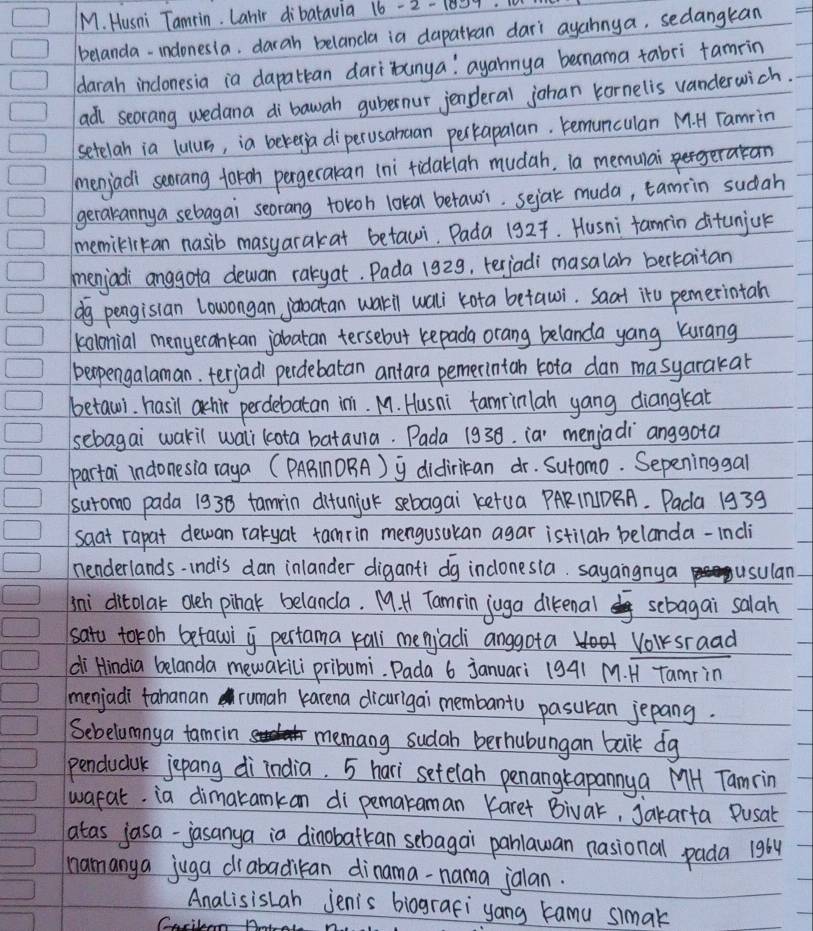 M. Husni Tamrin. Lahir di batavia 16-2-1894.
belanda - indonesia. darah belanda ia dapatkan dari ayahnya. sedangkan
darah indonesia ia dapatkan dari ibunya! ayahnya bernama tabri tamrin
adl seorang wedana di bawah gubernur jenderal johan kornelis vanderwich.
setelah ia lulus, ia bekerja di perusahaan perkapalan. kemunculan M.H Tamrin
menjadi seorang tokoh pergerakan ini tidaklah mudah. ia memulai pergerakan
gerakannya sebagai seorang tokoh lokal betawi. sejak muda, tamrin sudah
memikirkan nasib masyarakat betawi. Pada 1927. Husni tamrin ditunjuk
menjadi anggota dewan rakyat. Pada 1929, terjadi masalah berkaitan
dg pengisian lowongan jabatan wakil wali kota betawi. saat itu pemerintah
kolonial menyerahkan jabatan tersebut kepada orang belanda yang kurang
berpengalaman. terjadi perdebatan antara pemerintah kota dan masyarakat
betawi. hasil akhir perdebatan ini. M. Husni tamrinlah yang diangkat
sebagai wakil wali kota batavia. Pada 1938. ia menjadi anggota
partai indonesia raya (PARINDRA) yg didirikan dr. Sutomo. Sepeninggal
sutomo pada 1938 tamrin ditunjuk sebagai ketua PARINIDRA. Pada 1939
saat rapat dewan rakyat tamrin mengusukan agar istilah belanda - indi
nenderlands - indis dan inlander diganti dg indonesia. sayangnya usulan
ini ditolak oleh pihak belanda. M.H Tamrin juga dikenal sebagai salah
satu tokoh betawi yg pertama kali menjadi anggota Volksraad
di Hindia belanda mewakili pribumi. Pada 6 januari 1941 M.H Tamrin
menjadi tahanan rumah karena dicurigai membantu pasukan jepang.
Sebelumnya tamrin sudah memang sudah berhubungan baik dg
penduduk jepang di india. 5 hari setelah penangkapannya MH Tamrin
wafat. ia dimakamkan di pemakaman Karet Bivak, Jakarta Pusat
atas jasa - jasanya ia dinobatkan sebagai pahlawan nasional pada 1964
namanya juga diabadikan dinama - nama jalan.
Analisislah jenis biografi yang kamu simak